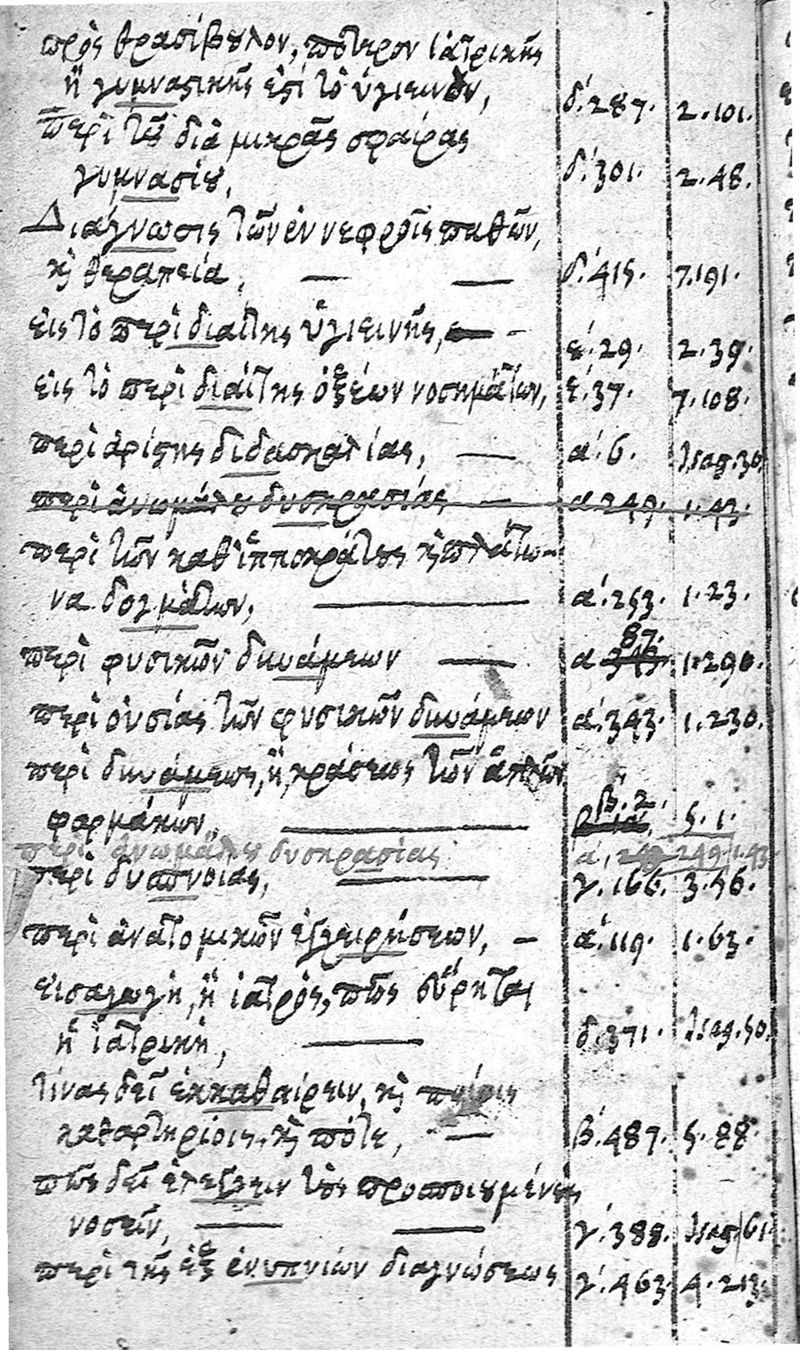 πρὸς θρασύβουλον, πότερον ἰατρικῆς
ἢ γυμναστικῆς ἐστὶ τὸ ὑγιεινόν, δ. 287. 2. 101.
περὶ τοῦ διὰ μικρᾶς σφαίρας
γυμνασίου, δ. 301. 2. 48.
Διάγνωσις τῶν ἐν νεφροῖς παθῶν,
κὴ θεραπεία, — — δ. 415. 7. 191.
εἰς τὸ περὶ διαίτης ὑγιεινῆς, — ε. 29. 2. 39.
εἰς τὸ περὶ διαίτης ὀξέων νοσημάτων, ε. 37. 7. 108.
περὶ ἀρίστης διδασκαλίας, — α. 6. Isag. 30.
περὶ ἀνωμάλου δυσκρασίας — α 249. 1. 43.
περὶ τῶν καθ' ἱπποκράτην κὴ πλάτω-
να δογμάτων, — α. 253. 1. 23.
περὶ φυσικῶν δυνάμεων — α 87. 343. 1. 290.
περὶ οὐσίας τῶν φυσικῶν δυνάμεων α. 343. 1. 230.
περὶ δυνάμεως, ἢ κράσεως τῶν ἁπλῶν
φαρμάκων, — β. 2. 5. 1.
περὶ ἀνωμάλου δυσκρασίας α. 249. 1. 43
περὶ δυσπνοίας, — γ. 166. 3. 56.
περὶ ἀνατομικῶν ἐγχειρήσεων, — α. 119. 1. 63.
εἰσαγωγὴ, ἢ ἰατρός, πῶς εὕρηται
ἡ ἰατρική, — δ. 371. Isag. 50.
τίνας δεῖ ἐκκαθαίρειν, κὴ ποίοις
καθαρτηρίοις, κὴ πότε, — β. 487. 5. 88.
πῶς δεῖ ἐλέγχειν τοὺς προσποιουμένους
νοσεῖν, — — γ. 388. Isag. 61.
περὶ τῆς ἐξ ἐνυπνίων διαγνώσεως γ. 463. 4. 213.